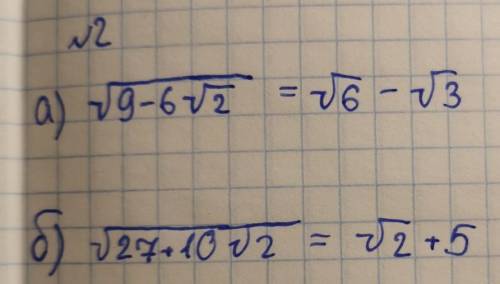 №2
а) √(9-6√2) = √6 - √3
б) √(27+10√2) = √2 + 5